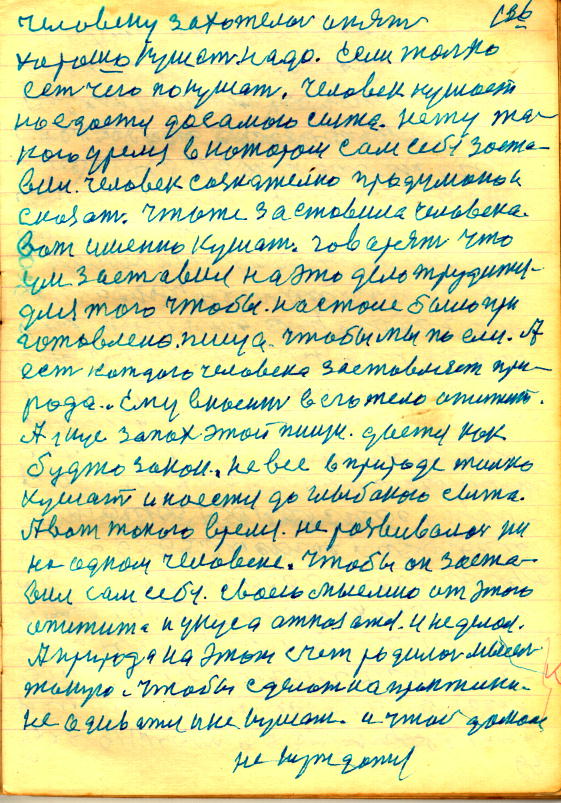 136
человеку захотелос опят
хорошо кушат. надо. Если толко
ест чего покушат. человек кушает
наедаетя досамого сыта. нету та-
кого уремя в котором сам себя заста-
вил. человек сознателно продумоно и
сказат. что же заставила человека.
вот именно кушат. говарят что
заставил на это дело трудится
для того чтобы. настоле было при
готовлено. пища. чтобы мы по ели. А
ест каждого человека заставляет при-
рода. Ему вносит в его тело апитит.
А запах этой пищи. дается как
будто закон. не все в природе толко
кушат и наестя до глыбокого сыта.
А вот токого время. не розвивалос ни
на одном человеке. чтобы он заста-
вил сам себя. своею мыслию от этого
апитита и укуса отказатя. и неделал.
А природа на этот счет родилос мысел
такую. чтобы сделат на практики.
не одиватя и не кушат. и чтоб домом
не нуждатя